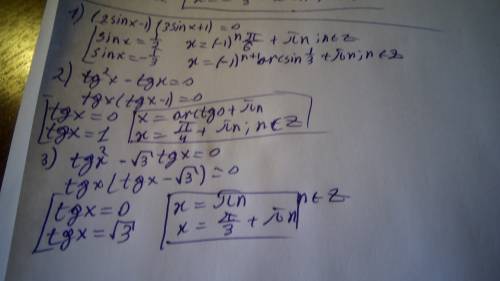 1) (2sinx-1)(3sinx+1)=0
[sinx=1/2 x=(-1)^n π/6 + πn; n∈Z
[sinx=-1/3 x=(-1)^{n+1} arcsin 1/3 + πn; n∈Z
2) tg²x - tgx=0
tgx(tgx-1)=0
[tgx=0 [x=arctg0+πn
[tgx=1 [x=π/4+πn; n∈Z
3) tg²x - √3 tgx=0
tgx(tgx-√3)=0
[tgx=0 [x=πn n∈Z
[tgx=√3 [x=π/3+πn